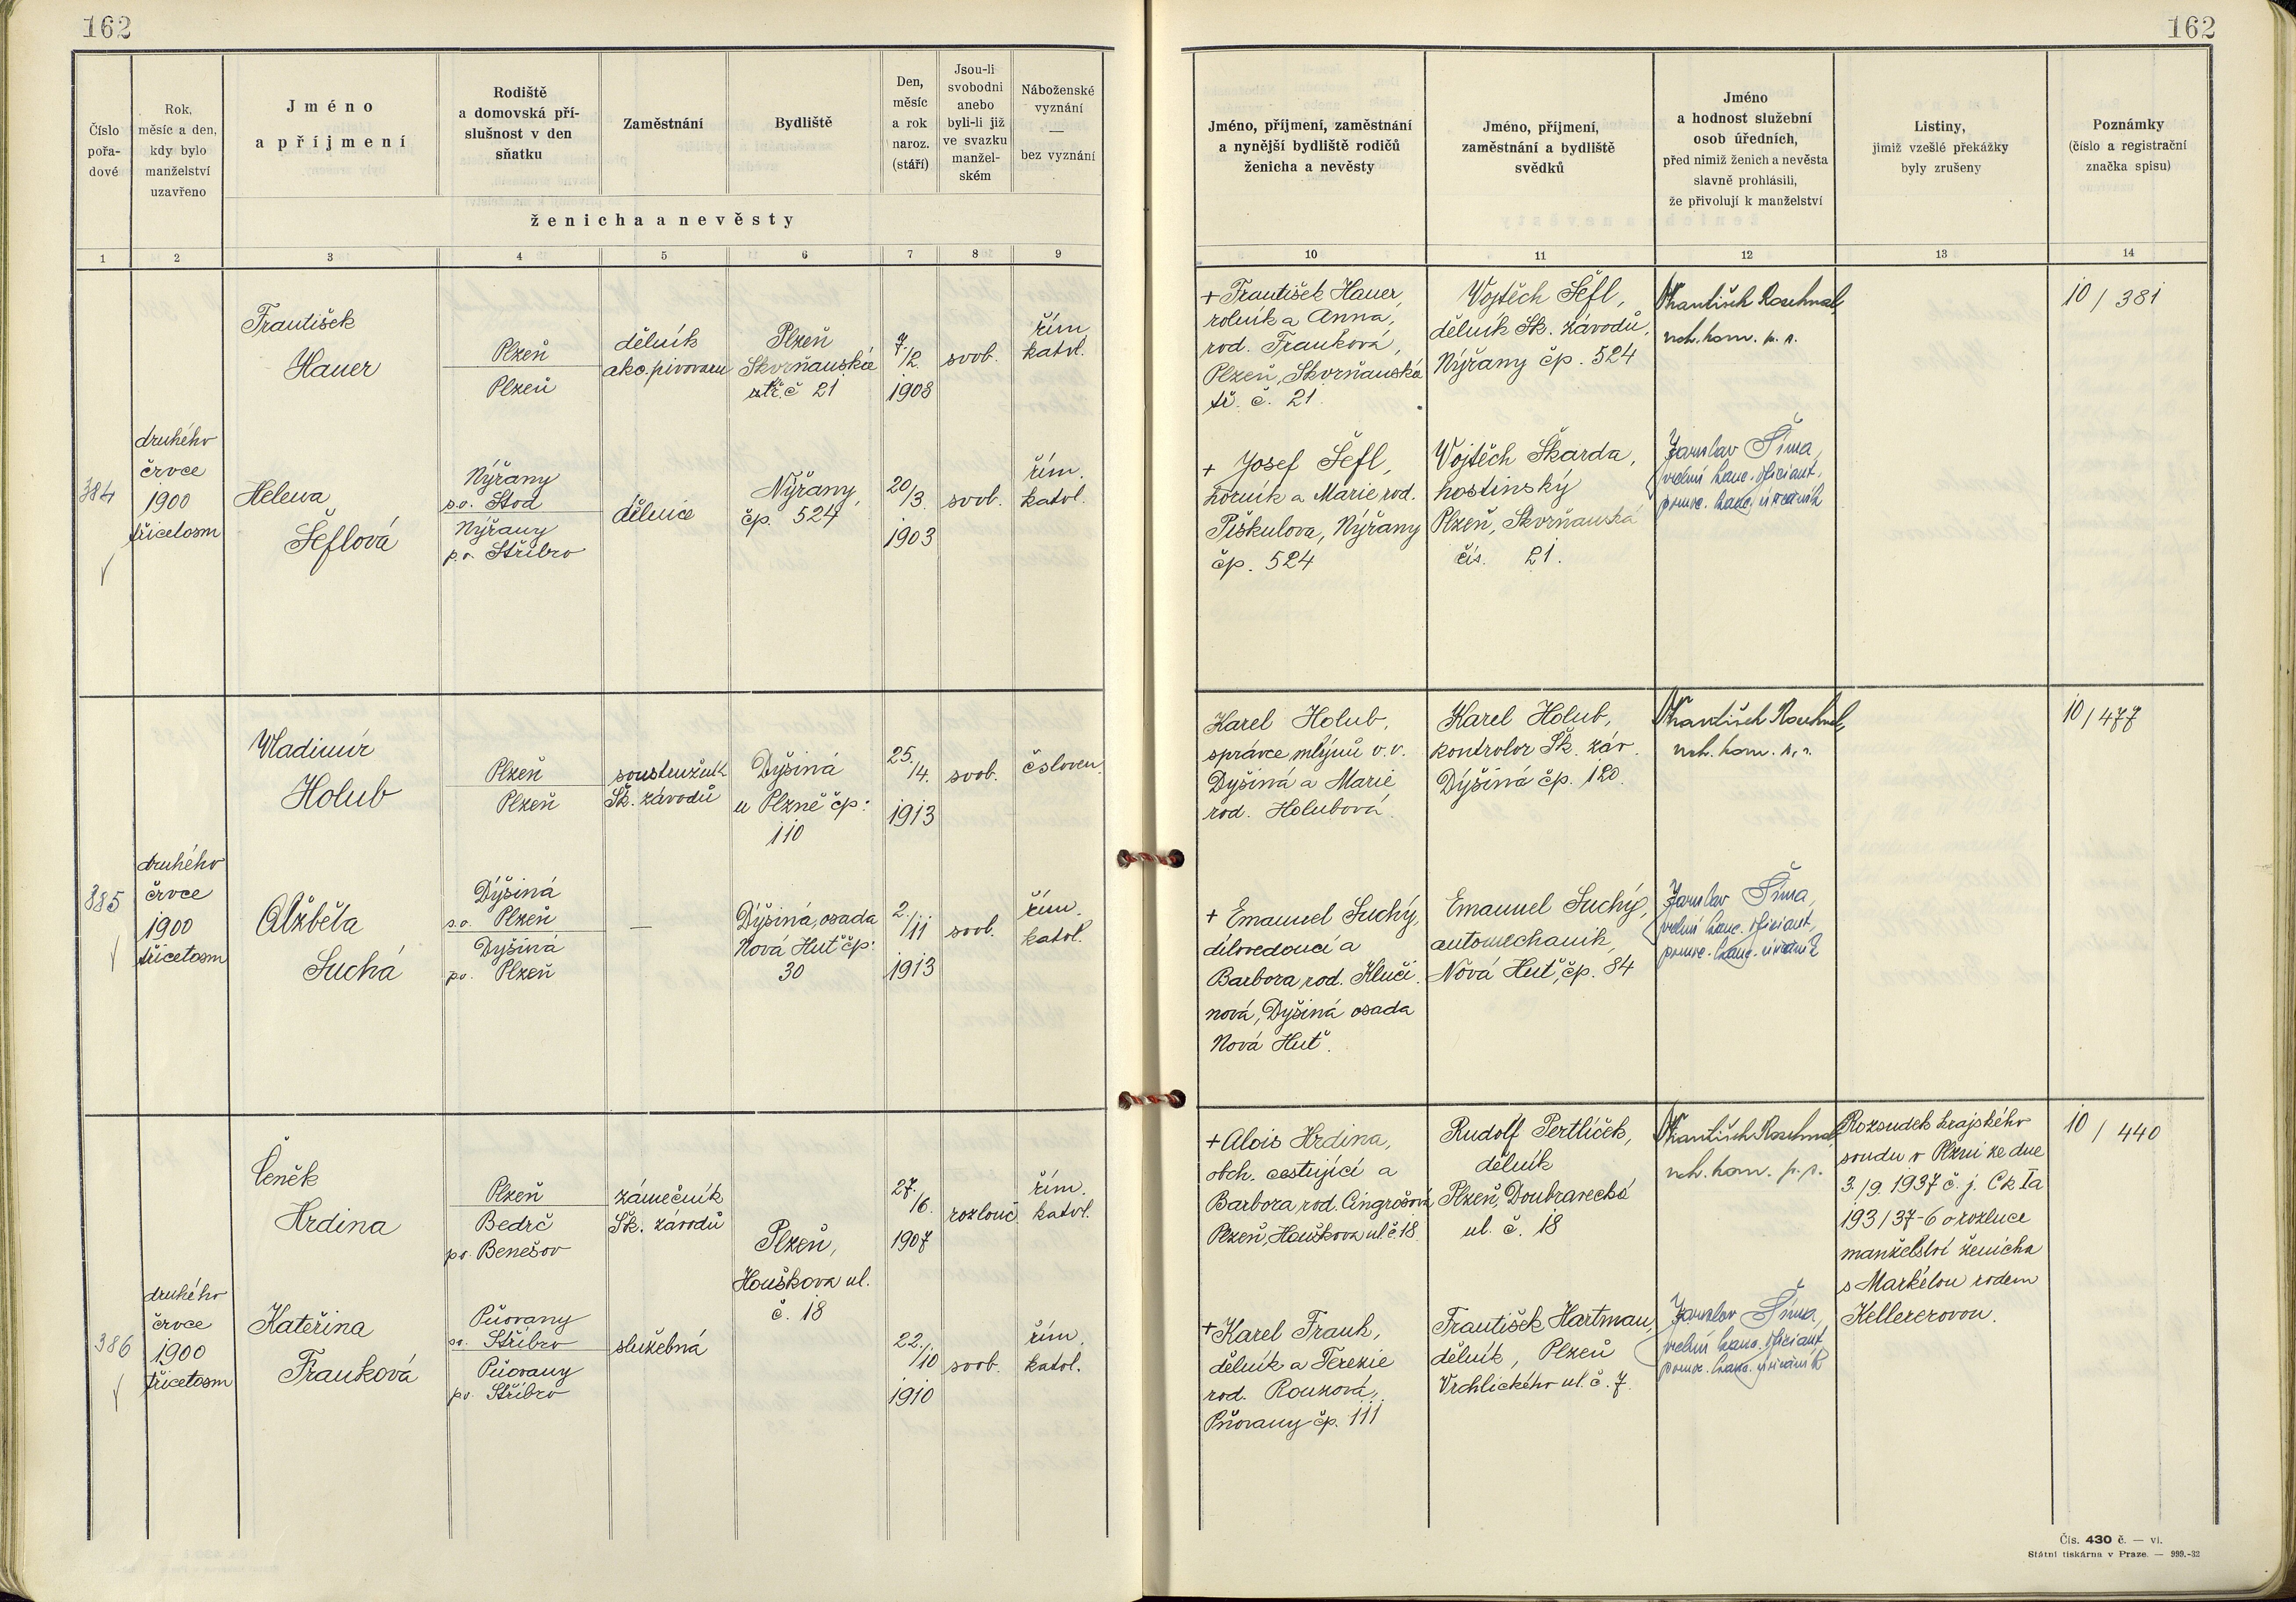 162
162
Číslo
pořa-
dové
Rok,
měsíc a den,
kdy bylo
manželství
uzavřeno
Jméno
a příjmení
Rodiště
a domovská pří-
slušnost v den
sňatku
Zaměstnání
Bydliště
Den,
měsíc
a rok
naroz.
(stáří)
Jsou-li
svobodni
anebo
byli-li již
ve svazku
manžel-
ském
Náboženské
vyznání
—
bez vyznání
ženicha a nevěsty
Jméno, příjmení, zaměstnání
a nynější bydliště rodičů
ženicha a nevěsty
Jméno, příjmení,
zaměstnání a bydliště
svědků
Jméno
a hodnost služební
osob úředních,
před nimiž ženich a nevěsta
slavně prohlásili,
že přivolují k manželství
Listiny,
jimiž vzešlé překážky
byly zrušeny
Poznámky
(číslo a registrační
značka spisu)
1 2 3 4 5 6 7 8 9
10 11 12 13 14
384
druhého
črvce
1900
třicetosm
František
Hauer
Plzeň
Plzeň
dělník
akc. pivovaru
Plzeň
Skvrňanská
tř. č 21
7./2.
1908
svob.
řím.
katol.
Helena
Šeflová
Nýřany
s.o. Stod
Nýřany
p.o. Stříbro
dělnice
Nýřany
čp. 524
20/3.
1903
svob.
řím.
katol.
+ František Hauer,
rolník a Anna,
rod. Franková,
Plzeň, Skvrňanská
tř. č. 21.
Vojtěch Šefl,
dělník Šk. závodů,
Nýřany čp. 524
František
vrch. kom. p. s.
10/381
+ Josef Šefl,
horník a Marie rod.
Piškulova, Nýřany
čp. 524
Vojtěch Škarda,
hostinský
Plzeň, Skvrňanská
čís. 21.
Jaroslav Šíma,
vrchní kanc. oficiant,
pomoc. kanc. úředník
385
druhého
črvce
1900
třicetosm
Vladimír
Holub
Plzeň
Plzeň
soustružník
Šk. závodů
Dýšiná
u Plzně čp:
110
25./4.
1913
svob.
čsloven.
Alžběta
Suchá
Dýšiná
s.o. Plzeň
Dyšiná
po. Plzeň
—
Dýšiná, osada
Nová Huť čp:
30
2./11
1913
svob.
řím.
katol.
Karel Holub,
správce mlýnů v. v.
Dyšiná a Marie
rod. Holubová.
Karel Holub,
kontrolor Šk. záv.
Dýšiná čp. 120.
František
vrch. kom. p. s.
10/477
+ Emanuel Suchý,
dílovedoucí a
Barbora, rod. Klučí-
nová, Dýšiná osada
Nová Huť.
Emanuel Suchý,
automechanik,
Nová Huť, čp. 84
Jaroslav Šíma,
vrchní kanc. oficiant,
pomoc. kanc. úředník
386
druhého
črvce
1900
třicetosm
Čeněk
Hrdina
Plzeň
Bedrč
po. Benešov
zámečník
Šk. závodů
Plzeň,
Houškova ul.
č. 18
27./6.
1907
rozlouč.
řím.
katol.
Kateřina
Franková
Pňovany
so. Stříbro
Pňovany
po. Stříbro
služebná
22./10
1910
svob.
řím.
katol.
+ Alois Hrdina,
obch. cestující a
Barbora rod. Cingrošová
Plzeň, Houškova ul č 18.
Rudolf Pertlíček,
dělník
Plzeň, Doubravecká
ul. č. 18
František
vrch. kom. p. s.
Rozsudek krajského
soudu v Plzni ze dne
3./9. 1937 č. j. Ck Ia
193/37-6 o rozluce
manželství ženicha
s Markétou rodem
Kellererovou.
10/440
+ Karel Frank,
dělník a Terezie
rod. Rouzová,
Pňovany čp. 111
František Hartman,
dělník, Plzeň
Vrchlického ul. č. 7.
Jaroslav Šíma,
vrchní kanc. oficiant,
pomoc. kanc. úředník
Čís. 430 č. — vl.
Státní tiskárna v Praze. — 999.-32